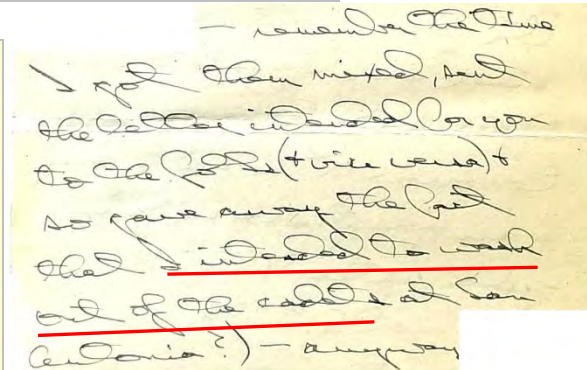 – remember the time
I got them mixed, sent
the letter intended for you
to the folks (+ vice versa) +
so gave away the fact
that I intended to wash
out of the cadets at San
Antonio?) – anyway